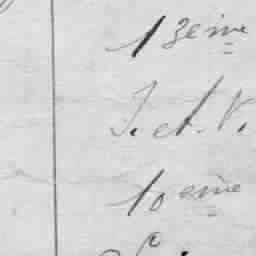 13eme
J. et. V.
10 eme